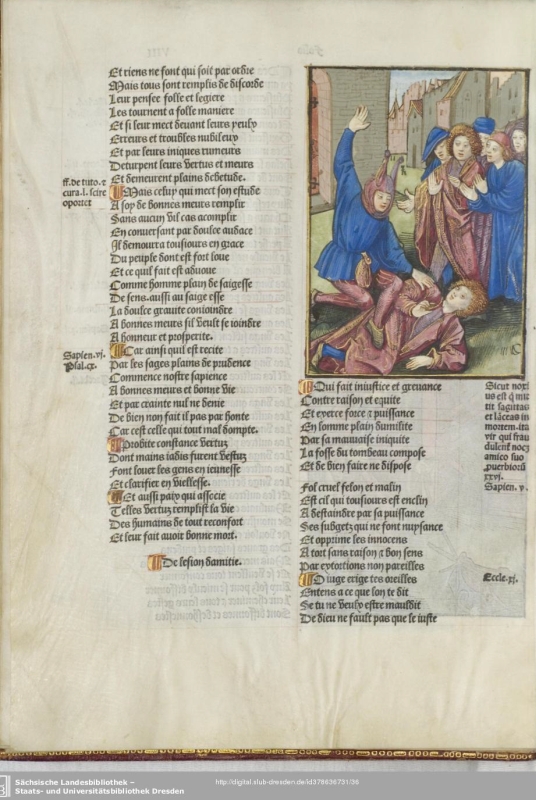 Et riens ne font qui soit par ordre
Mais tous sont remplis de discorde
Leur pensee folle et legiere
Les tournent a folle maniere
Et si leur mect devant leurs yeulx
Erreurs et troubles nubileux
Et par leurs iniques rumeurs
Deturpent leurs vertus et meurs
Et demeurent plains debetude.
ff. de tuto. ⁊
cura. l. scire
oportet
Mais celuy qui mect son estude
A soy de bonnes meurs remplir
Sans aucun vil cas acomplir
En conversant par doulce audace
Il demourra tousiours en grace
Du peuple dont est fort loue
Et ce quil fait est advoue
Comme homme plain de saigesse
De sens. aussi au saige esse
La doulce gravite conioindre
A bonnes meurs sil veult se ioindre
A honneur et prosperite.
Sapien. vi.
Psal. cx.
Car ainsi quil est recite
Par les sages plains de prudence
Commence nostre sapience
A bonnes meurs et bonne vie
Et par crainte nul ne denie
De bien non fait il pas par honte
Car cest celle qui tout mal dompte.
Probite constance vertuz
Dont mains iadis furent vestuz
Font louer les gens en ieunesse
Et clarifier en viellesse.
Et aussi paix qui associe
Telles vertuz remplist la vie
Des humains de tout reconfort
Et leur fait avoir bonne mort.
De lesion damitie.
Qui fait iniustice et grevance
Contre raison et equite
Et exerce force ⁊ puissance
En lomme plain dumilite
Par sa mauvaise iniquite
La fosse du tombeau compose
Et de bien faire ne dispose
Sicut noxi
us est q̃ mit
tit sagittas
et lãceas in
mortem. ita
vir qui frau
dulẽter nocz
amico suo
xxvi.
Sapien. v.
Fol cruel felon et malin
Est cil qui tousiours est enclin
A destaindre par sa puissance
Ses subgetz qui ne font nuysance
Et opprime les innocens
A tort sans raison ⁊ bon sens
Par extortions non pareilles
Eccle. xi.
O iuge erige tes oreilles
Entens a ce que lon te dit
Se tu ne veulx estre mauldit
De dieu ne fault pas que le iuste
Sächsische Landesbibliothek –
Staats- und Universitätsbibliothek Dresden
http://digital.slub-dresden.de/id378636731/36